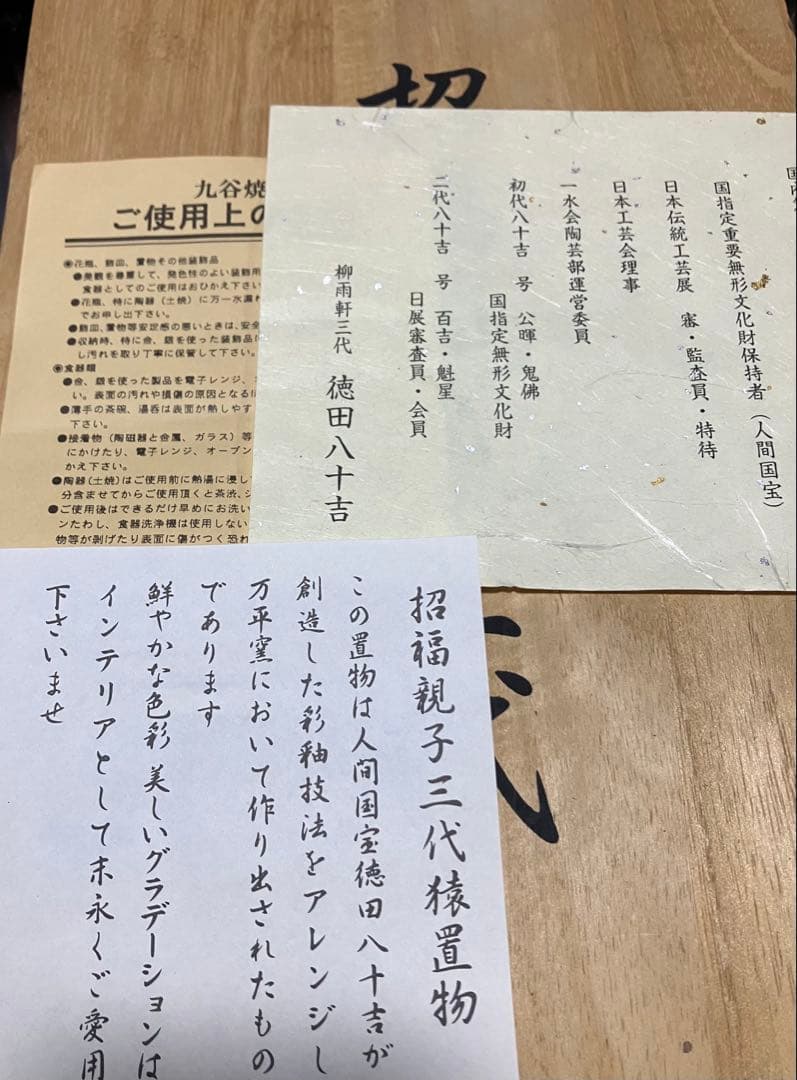 招
九谷焼
ご使用上の
◉花瓶、飾皿、置物その他装飾品
●発色性のよい装飾用
食器としてのご使用はおひかえ下さい
●花瓶、特に陶器（土焼）に万一水漏れ
でお申し出下さい。
●飾皿、置物等安定感の悪いときは、安全
●収納時、特に金、銀を使った装飾品は
し汚れを取り丁寧に保管して下さい。
◉食器類
●金、銀を使った製品を電子レンジ、
い。表面の汚れや損傷の原因となるば
●薄手の茶碗、湯呑は表面が熱しやす
下さい。
●接着物（陶磁器と金属、ガラス）等
にかけたり、電子レンジ、オーブン
かえ下さい。
●陶器（土焼）はご使用前に熱湯に浸して
分含ませてからご使用頂くと茶渋、シ
●ご使用後はできるだけ早めにお洗い
ンたわし、食器洗浄機は使用しない
物等が剥げたり表面に傷がつく恐れ
国指定重要無形文化財保持者（人間国宝）
日本伝統工芸展　審・監査員・特待
日本工芸会理事
一水会陶芸部運営委員
初代八十吉　号　公暉・鬼佛
国指定無形文化財
二代八十吉　号　百吉・魁星
日展審査員・会員
柳雨軒三代　徳田八十吉
招福親子三代猿置物
この置物は人間国宝徳田八十吉が
創造した彩釉技法をアレンジし
万平窯において作り出されたもの
であります
鮮やかな色彩 美しいグラデーションは
インテリアとして末永くご愛用
下さいませ